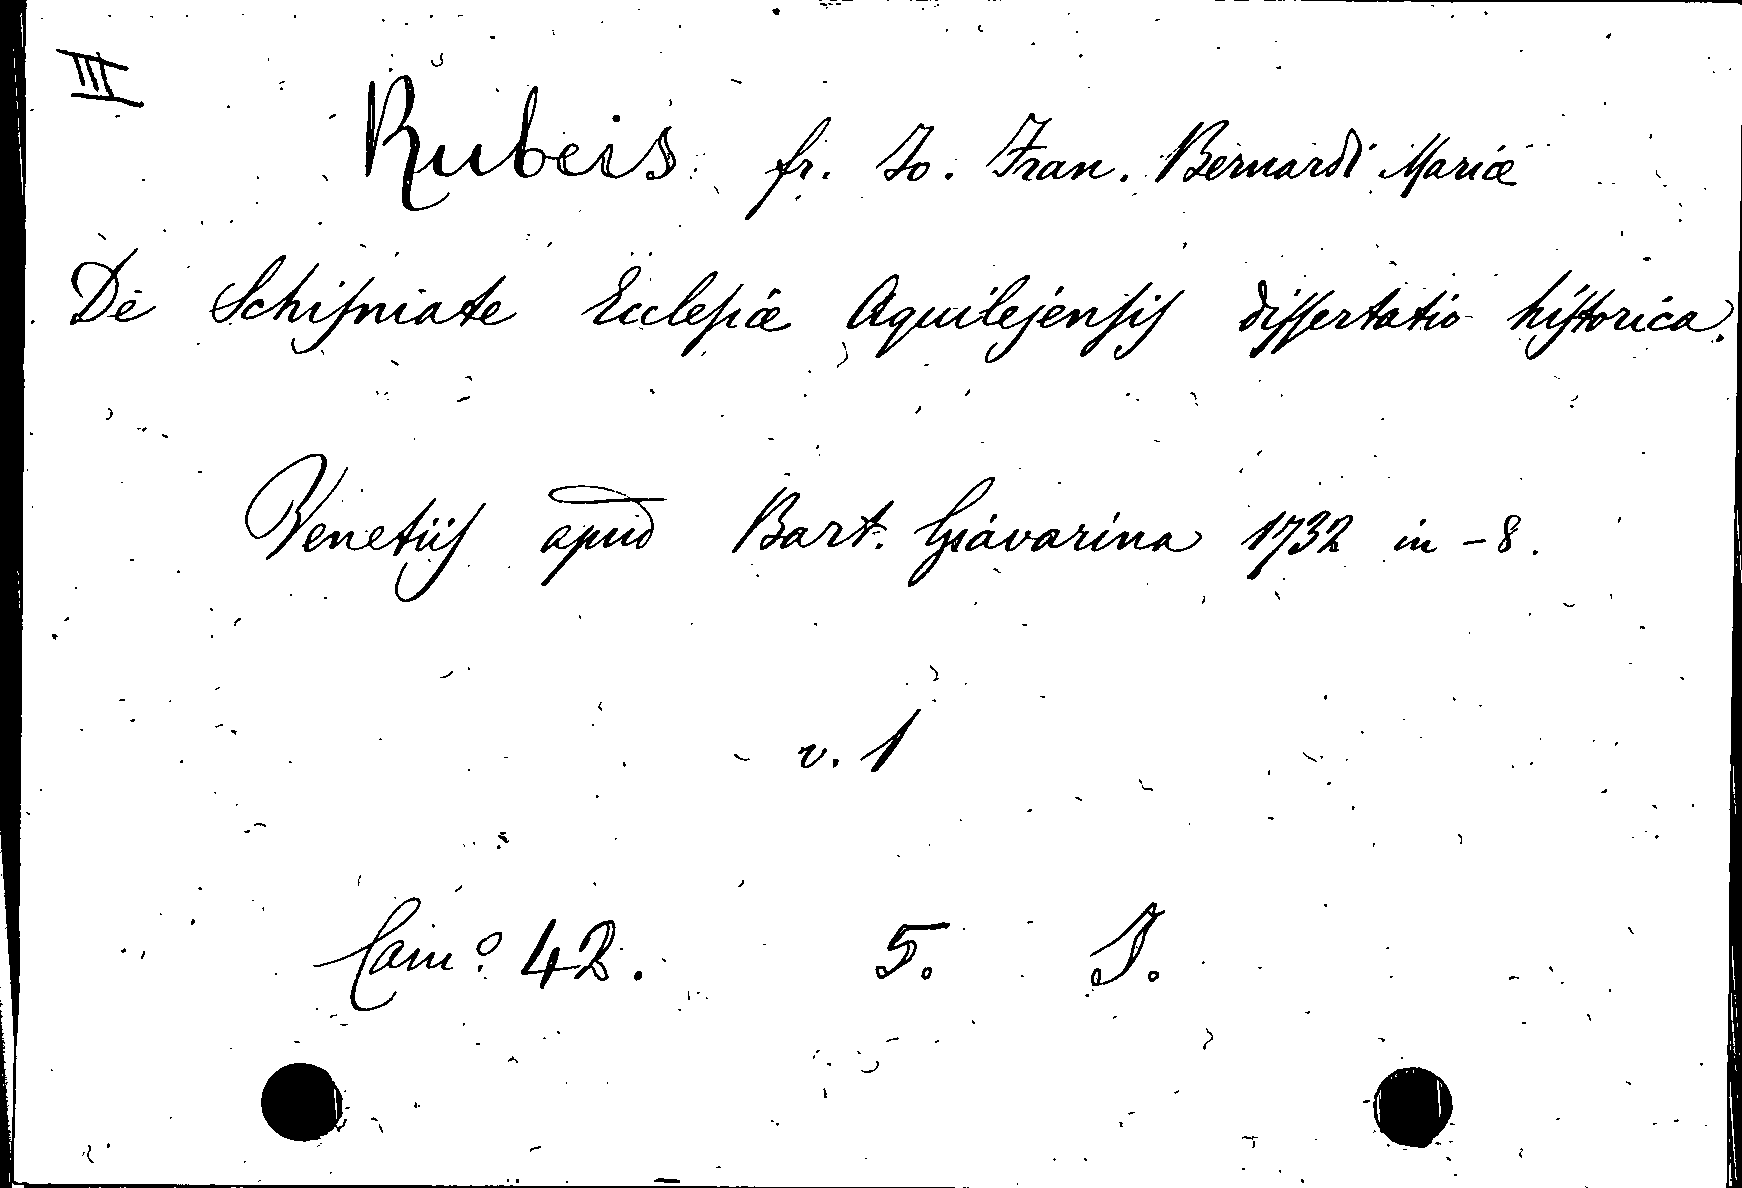 III
Rubeis fr. Jo. Fran. Bernardi Mariæ
De Schiſmate Eccleſiæ Aquilejenſiſ diſſertatio hiſtorica.
Venetiiſ apud Bart. Giavarina 1732 in-8.
v. 1
Cam.º 42. 5. I.